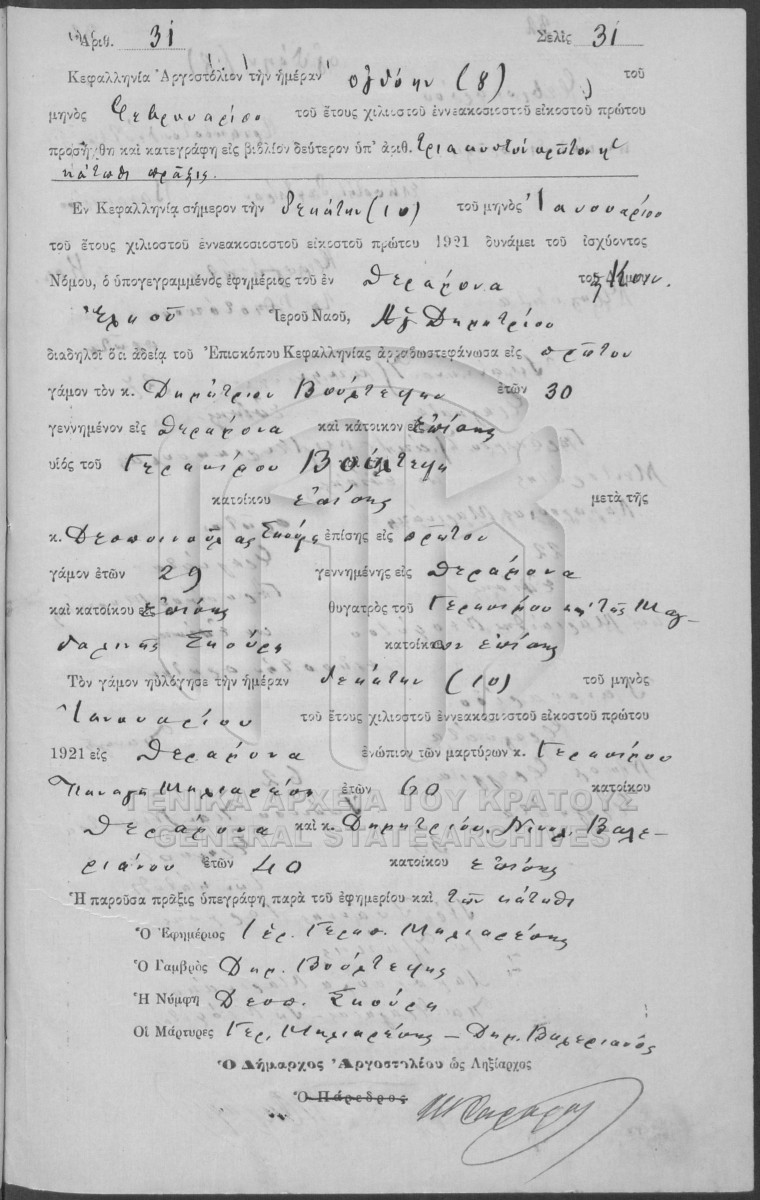 Ἀριθ. 31 Σελὶς 31
Κεφαλληνία Ἀργοστόλιον τὴν ἡμέραν ὀγδόην (8) τοῦ
μηνὸς Φεβρουαρίου τοῦ ἔτους χιλιοστοῦ ἐννεακοσιοστοῦ εἰκοστοῦ πρώτου
προσήχθη καὶ κατεγράφη εἰς βιβλίον δεύτερον ὑπ' ἀριθ. τριακοστὸν πρῶτον ἡ
κάτωθι πρᾶξις.
Ἐν Κεφαλληνίᾳ σήμερον τὴν δεκάτην (10) τοῦ μηνὸς Ἰανουαρίου
τοῦ ἔτους χιλιοστοῦ ἐννεακοσιοστοῦ εἰκοστοῦ πρώτου 1921 δυνάμει τοῦ ἰσχύοντος
Νόμου, ὁ ὑπογεγραμμένος ἐφημέριος τοῦ ἐν Θεραμόνα
Ἱεροῦ Ναοῦ, Ἁγ. Δημητρίου
διαδηλοῖ ὅτι ἀδείᾳ τοῦ Ἐπισκόπου Κεφαλληνίας ἀρραβωστεφάνωσα εἰς πρῶτον
γάμον τὸν κ. Δημήτριον Βούλτεψην ἐτῶν 30
γεννημένον εἰς Θεραμόνα καὶ κάτοικον εἰς ἐπίσης
υἱὸς τοῦ Γερασίμου Βούλτεψη
κατοίκου ἐπίσης μετὰ τῆς
κ. Δεσποινούλας Σκούρη ἐπίσης εἰς πρῶτον
γάμον ἐτῶν 29 γεννημένης εἰς Θεραμόνα
καὶ κατοίκου εἰς ἐπίσης θυγατρὸς τοῦ Γερασίμου καὶ τῆς Μαγ-
δαληνῆς Σκούρη κατοίκων ἐπίσης
Τὸν γάμον ηὐλόγησε τὴν ἡμέραν δεκάτην (10) τοῦ μηνὸς
Ἰανουαρίου τοῦ ἔτους χιλιοστοῦ ἐννεακοσιοστοῦ εἰκοστοῦ πρώτου
1921 εἰς Θεραμόνα ἐνώπιον τῶν μαρτύρων κ. Γερασίμου
Παναγῆ Μηλιαρέση ἐτῶν 60 κατοίκου
ΓΕΝΙΚΑ ΑΡΧΕΙΑ ΤΟΥ ΚΡΑΤΟΥΣ
Θεραμόνα καὶ κ. Δημητρίου Νικολ. Βαλε-
GENERAL STATE ARCHIVES
ριάνου ἐτῶν 40 κατοίκου ἐπίσης
Ἡ παροῦσα πρᾶξις ὑπεγράφη παρὰ τοῦ ἐφημερίου καὶ τῶν κάτωθι
Ὁ Ἐφημέριος Ἱερ. Γερασ. Μηλιαρέσης
Ὁ Γαμβρὸς Δημ. Βούλτεψης
Ἡ Νύμφη Δεσπ. Σκούρη
Οἱ Μάρτυρες Γερ. Μηλιαρέσης – Δημ. Βαλεριάνος
Ὁ Δήμαρχος Ἀργοστολίου ὡς Ληξίαρχος
Ὁ Πάρεδρος